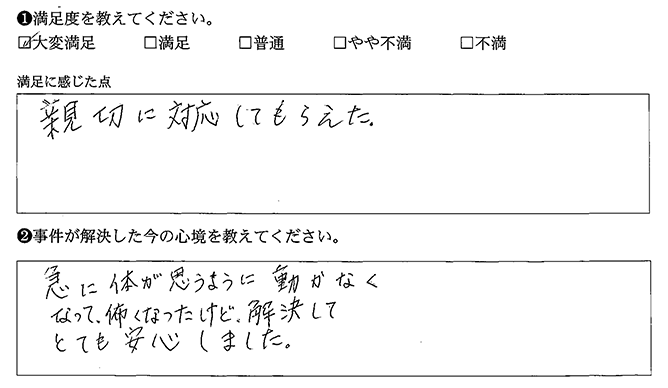 ❶満足度を教えてください。
☑大変満足 □満足 □普通 □やや不満 □不満
満足に感じた点
親切に対応してもらえた。
❷事件が解決した今の心境を教えてください。
急に体が思うように動かなく
なって、怖くなったけど、解決して
とても安心しました。